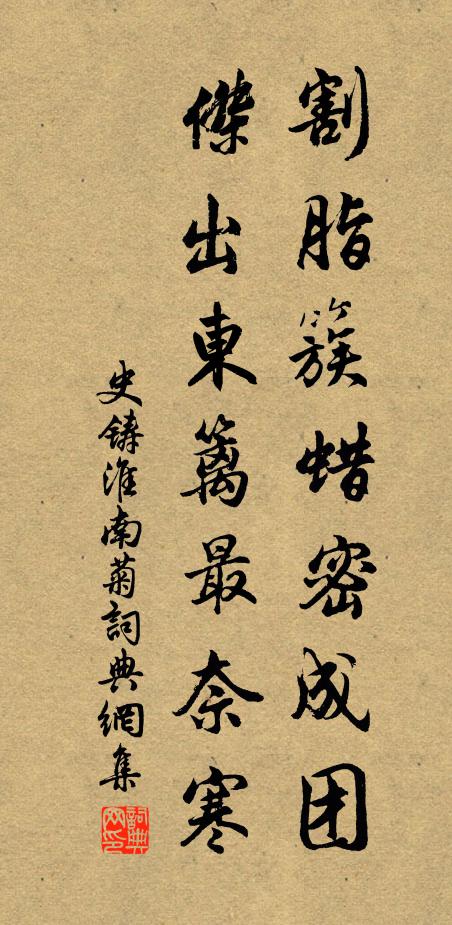 割脂簇蜡密成团
傑出東籬最柰寒
史鑄淮南菊詞典網集
詞典网印